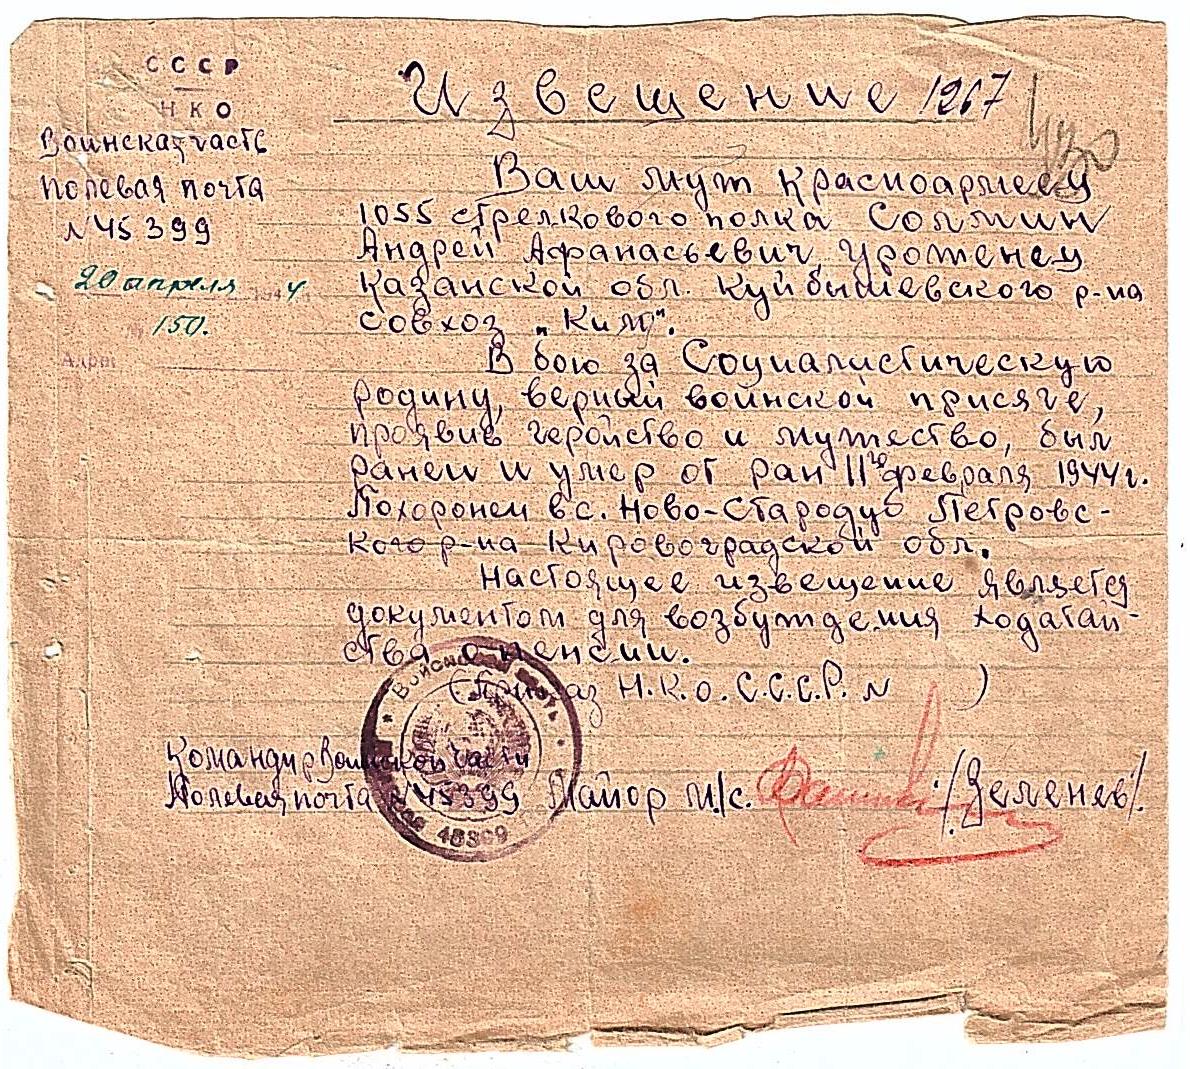 СССР
НКО
Воинская часть
полевая почта
№ 45399
20 апреля 1944
150.
Адрес
Извещение 1267
Ваш муж красноармеец
1055 стрелкового полка
Андрей Афанасьевич, уроженец
Казанской обл. Куйбышевского р-на
совхоз „Ким".
В бою за Социалистическую
родину, верный воинской присяге,
проявив геройство и мужество, был
ранен и умер от ран 11го февраля 1944 г.
Похоронен в с. Ново-Стародуб Петровс-
кого р-на Кировоградской обл.
Настоящее извещение является
документом для возбуждения ходатай-
ства о пенсии.
(Приказ Н.К.О.С.С.С.Р. №      )
Командир Воинской Части
Полевая почта №45399 Майор и/с. /Зеленев/.
Войсковая часть
45399